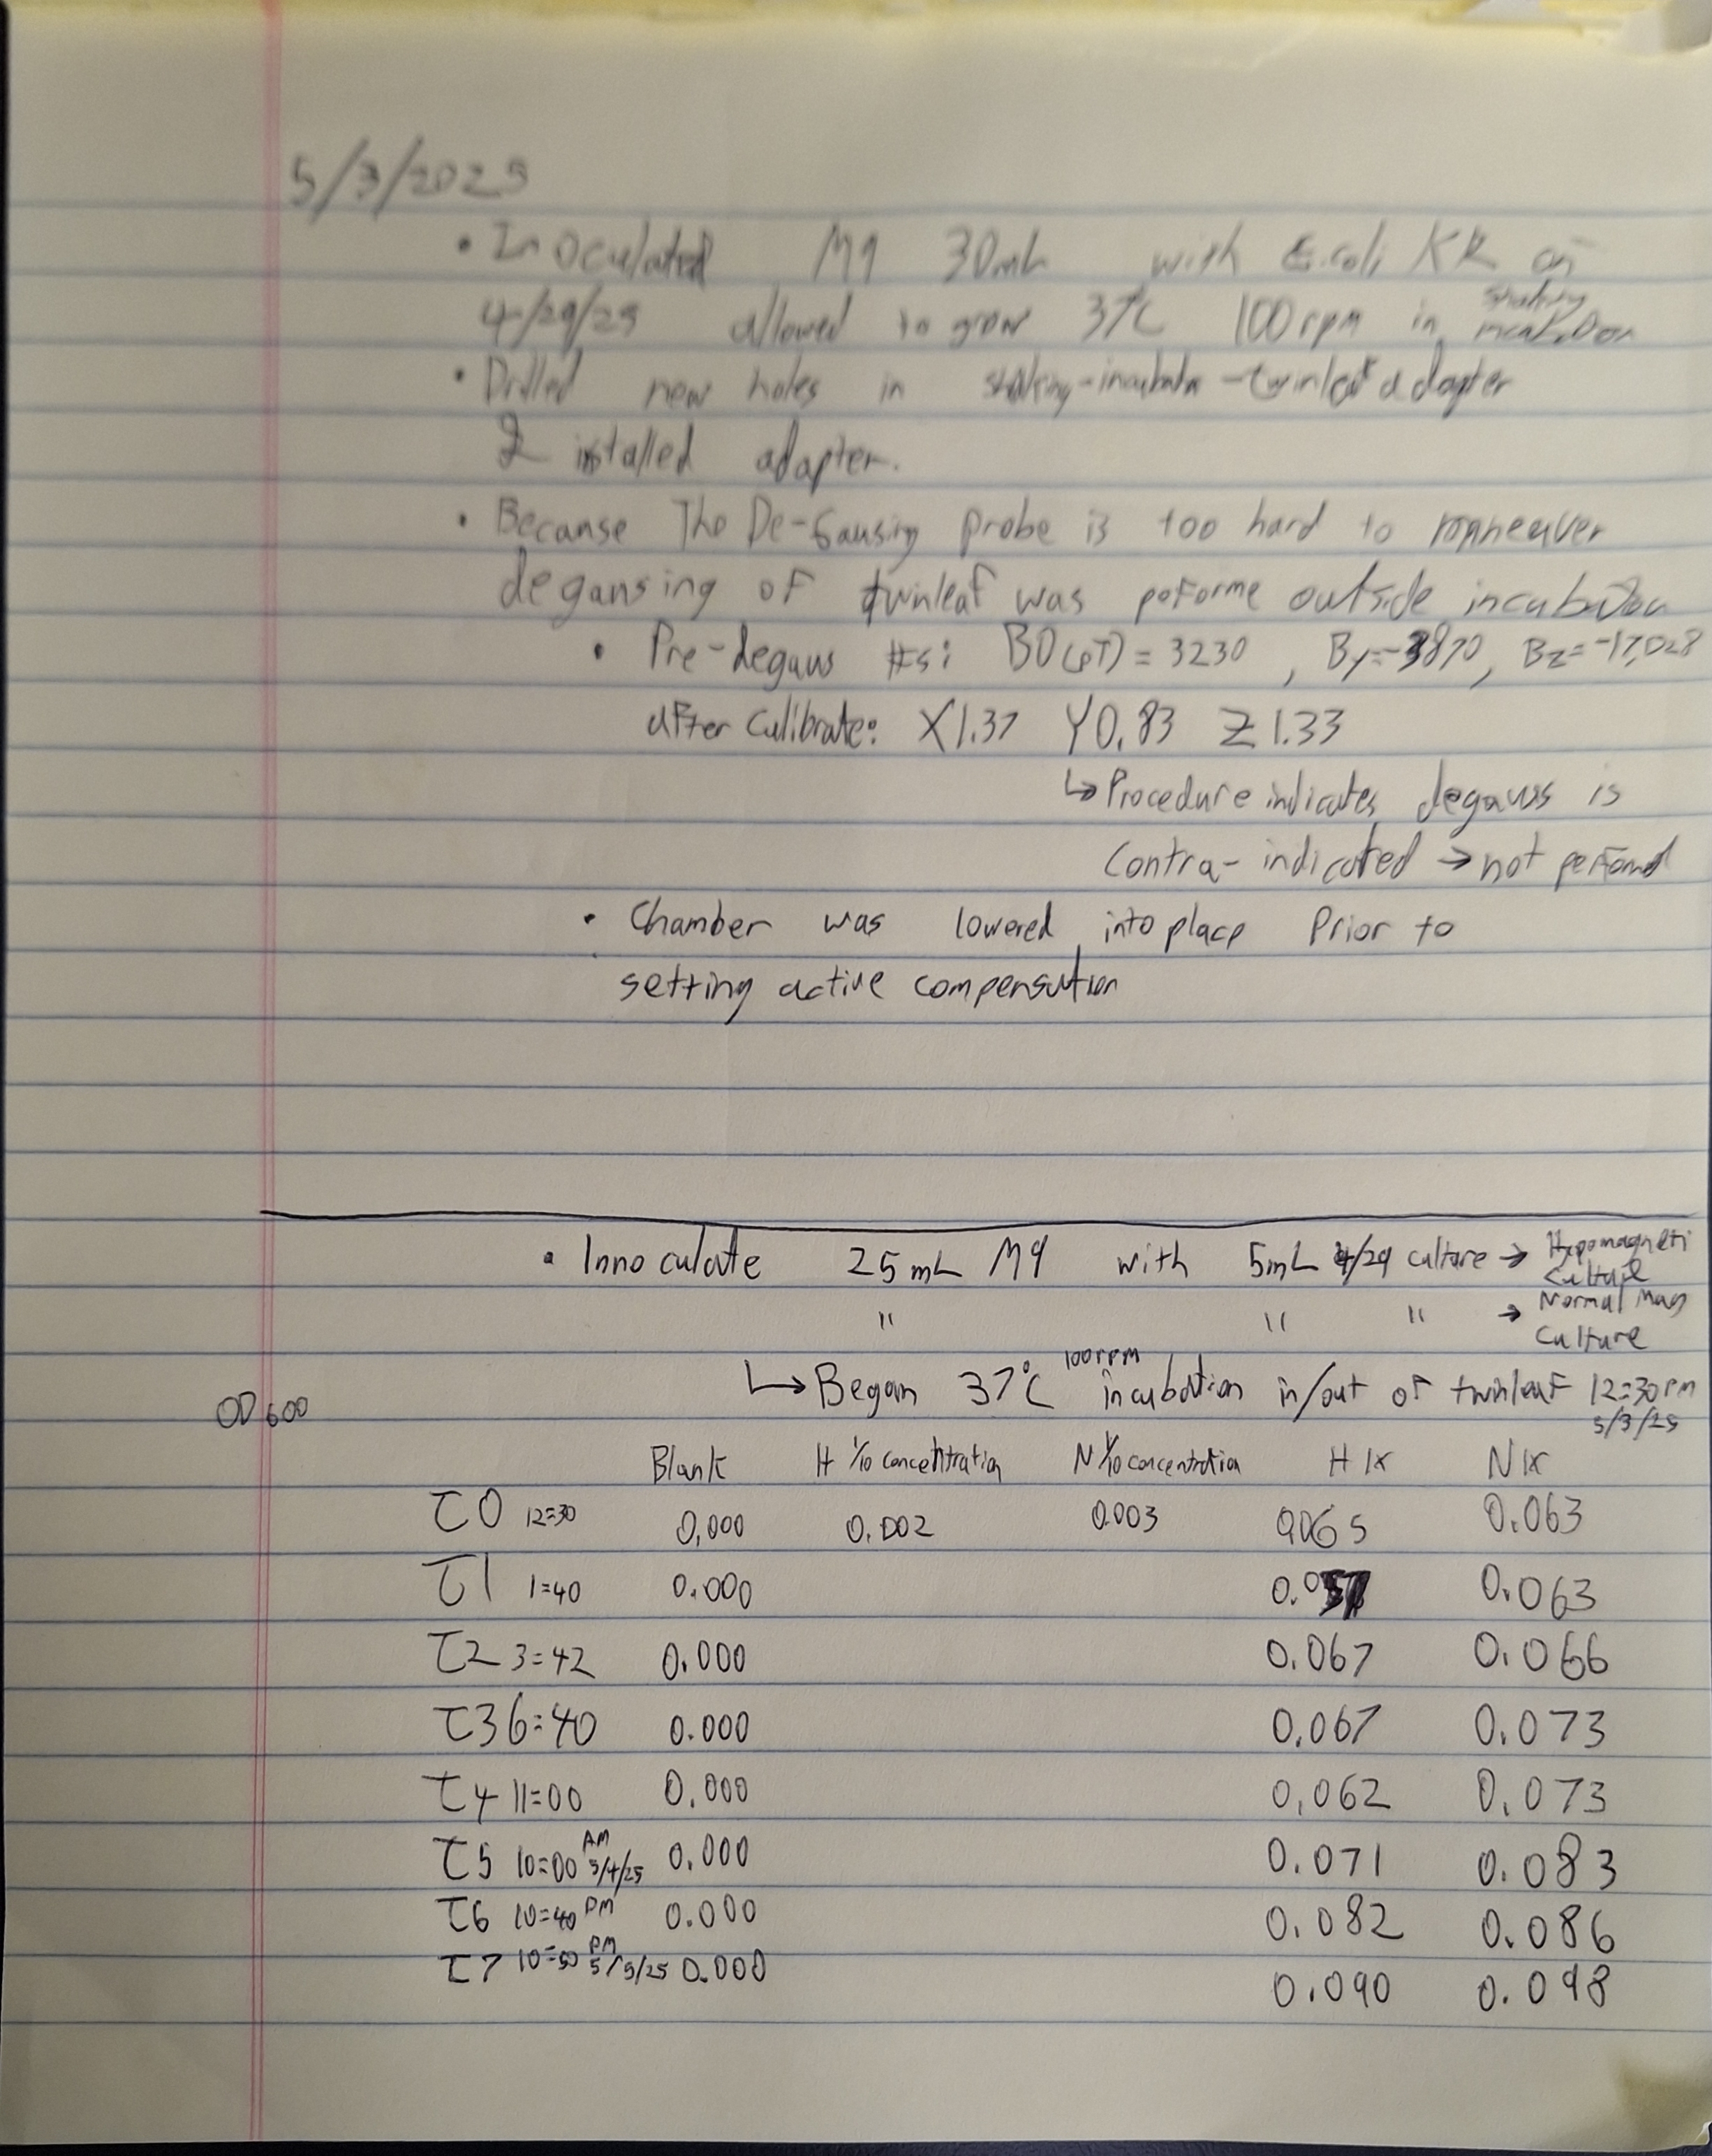 5/3/2025
• Inoculated M9 30mL with E.coli KR on
4/29/25 allowed to grow 37°C 100rpm in shaking
• Drilled new holes in shaking-incubator-twinleaf adapter
& installed adapter.
• Because The De-Gausing probe is too hard to maneuver
degausing of twinleaf was poforme outside
• Pre-degauss #s: (pT) = 3230 , By=-3870, Bz=-17,028
after calibrate: X1.37 Y0.83 Z1.33
↳ Procedure indicates degauss is
Contra-indicated → not
• Chamber was lowered into place Prior to
setting active compensation
• Innoculate 25mL M9 with 5mL 4/29 culture → Hypomagneti
Culture
" " " → Normal Mag
Culture
↳ Began 37°C 100rpm incubation in/out of twinleaf 12:30PM
5/3/25
OD600
Blank H 1/10 concentration N 1/10 concentration H 1x N 1x
T0 12:30 0.000 0.002 0.003 0.065 0.063
T1 1:40 0.000 0.063
T2 3:42 0.000 0.067 0.066
T3 6:40 0.000 0.067 0.073
T4 11:00 0.000 0.062 0.073
T5 10:00 AM 5/4/25 0.000 0.071 0.083
T6 10:40 PM 0.000 0.082 0.086
T7 10:50 PM 5/5/25 0.000 0.090 0.098